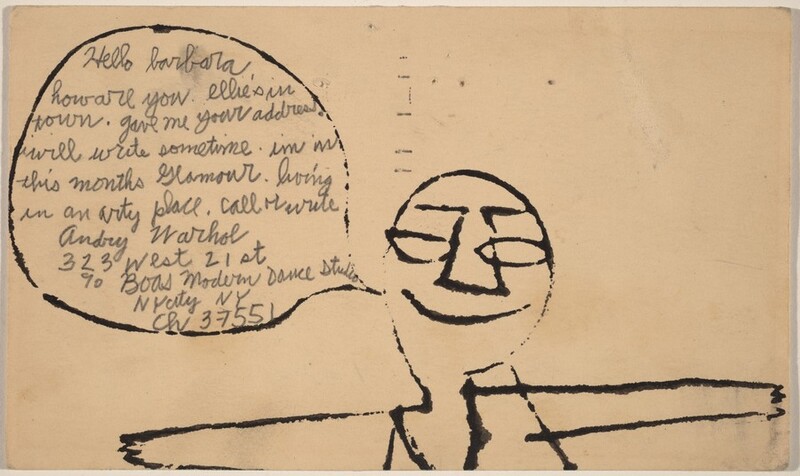 Hello barbara,
how are you. ellie's in
town. gave me your address.
will write sometime. im in
this months Glamour. living
in an arty place. call or write
Andry Warhol
323 West 21 st
% BOAS Modern Dance Studio
NY city NY
Ch 37551